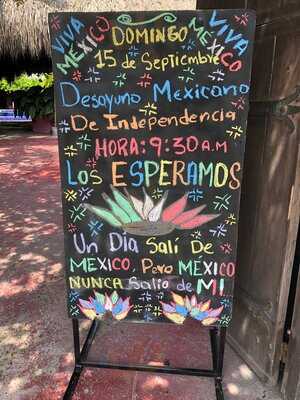 VIVA MEXICO
DOMINGO
VIVA MEXICO
15 de Septiembre
Desayuno Mexicano
De Independencia
HORA: 9:30 A.M
Los ESPERAMOS
Un Día Salí De
MEXICO, Pero MÉXICO
NUNCA Salio de MI